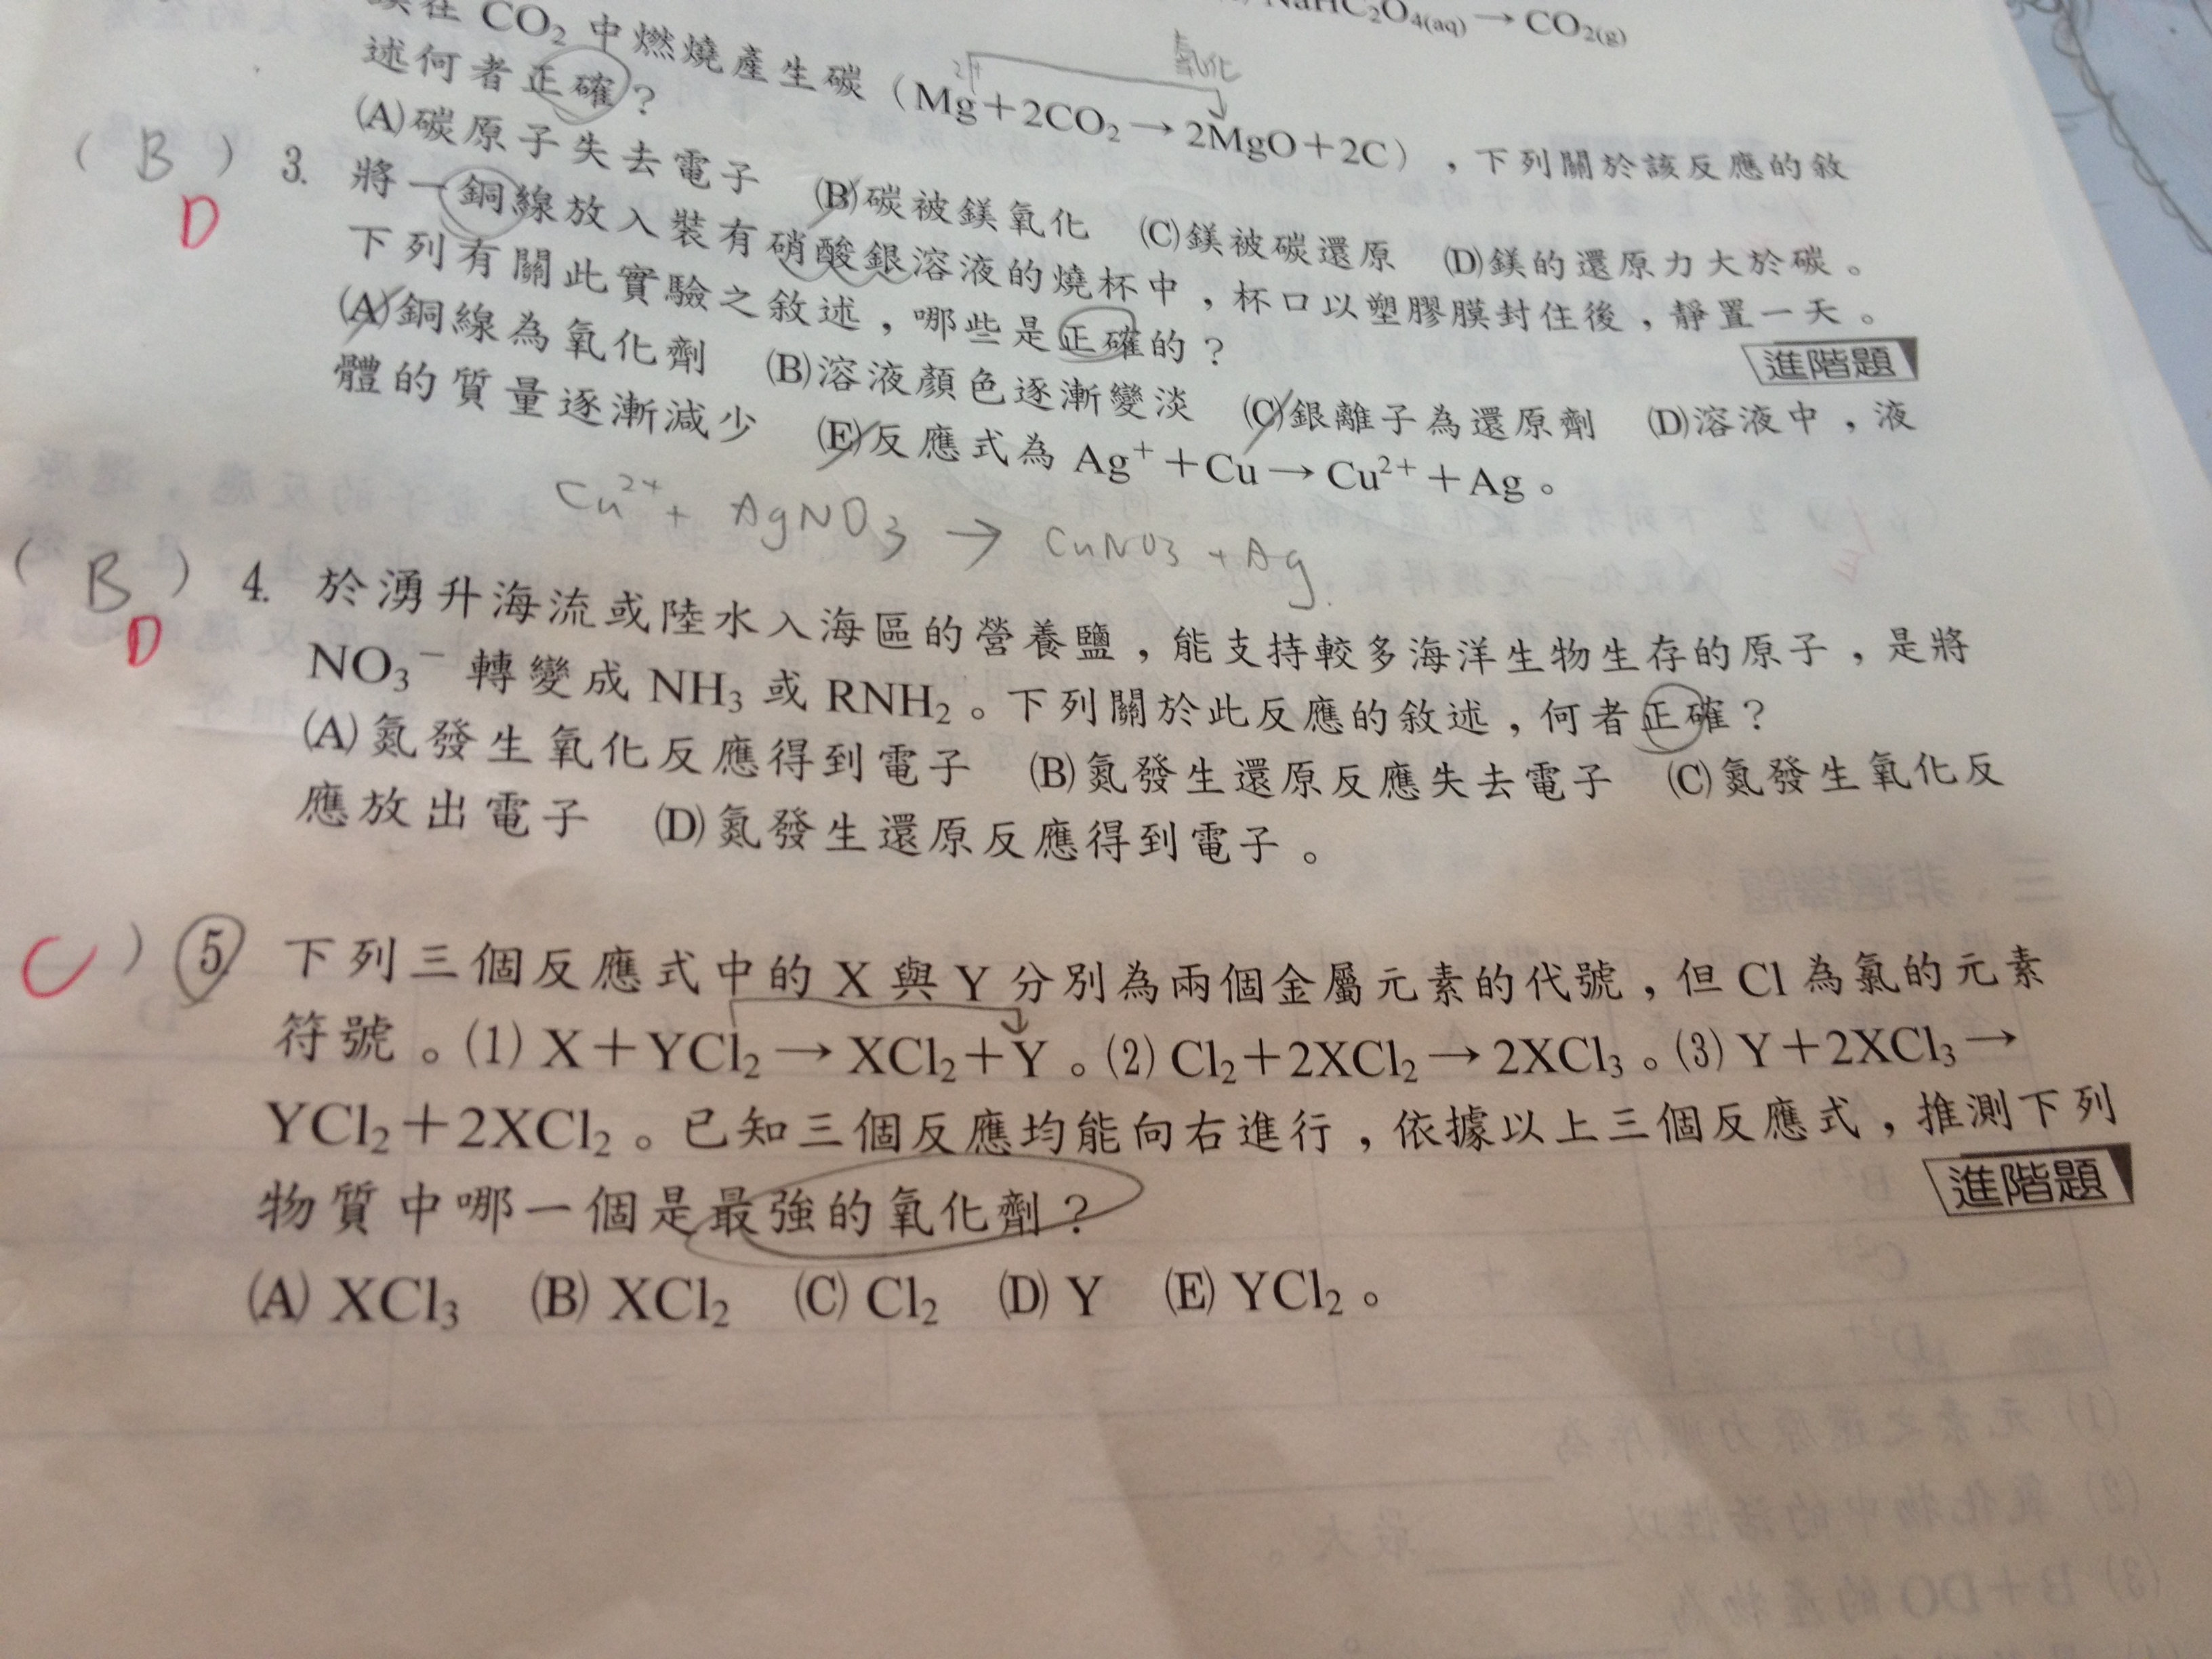 在 CO₂ 中燃燒產生碳（Mg＋2CO₂→2MgO＋2C），下列關於該反應的敘
NaHC₂O₄(aq)→CO₂(g)
2+
氧化
述何者正確？
(A)碳原子失去電子 (B)碳被鎂氧化 (C)鎂被碳還原 (D)鎂的還原力大於碳。
( B ) 3. 將一銅線放入裝有硝酸銀溶液的燒杯中，杯口以塑膠膜封住後，靜置一天。
D
下列有關此實驗之敘述，哪些是正確的？ 進階題
(A)銅線為氧化劑 (B)溶液顏色逐漸變淡 (C)銀離子為還原劑 (D)溶液中，液
體的質量逐漸減少 (E)反應式為 Ag⁺＋Cu→Cu²⁺＋Ag。
Cu²⁺ + AgNO₃ → CuNO₃ + Ag.
( B ) 4. 於湧升海流或陸水入海區的營養鹽，能支持較多海洋生物生存的原子，是將
D
NO₃⁻ 轉變成 NH₃ 或 RNH₂。下列關於此反應的敘述，何者正確？
(A)氮發生氧化反應得到電子 (B)氮發生還原反應失去電子 (C)氮發生氧化反
應放出電子 (D)氮發生還原反應得到電子。
C ) 5 下列三個反應式中的 X 與 Y 分別為兩個金屬元素的代號，但 Cl 為氯的元素
符號。(1) X＋YCl₂→XCl₂＋Y。(2) Cl₂＋2XCl₂→2XCl₃。(3) Y＋2XCl₃→
YCl₂＋2XCl₂。已知三個反應均能向右進行，依據以上三個反應式，推測下列
物質中哪一個是最強的氧化劑？ 進階題
(A) XCl₃ (B) XCl₂ (C) Cl₂ (D) Y (E) YCl₂。